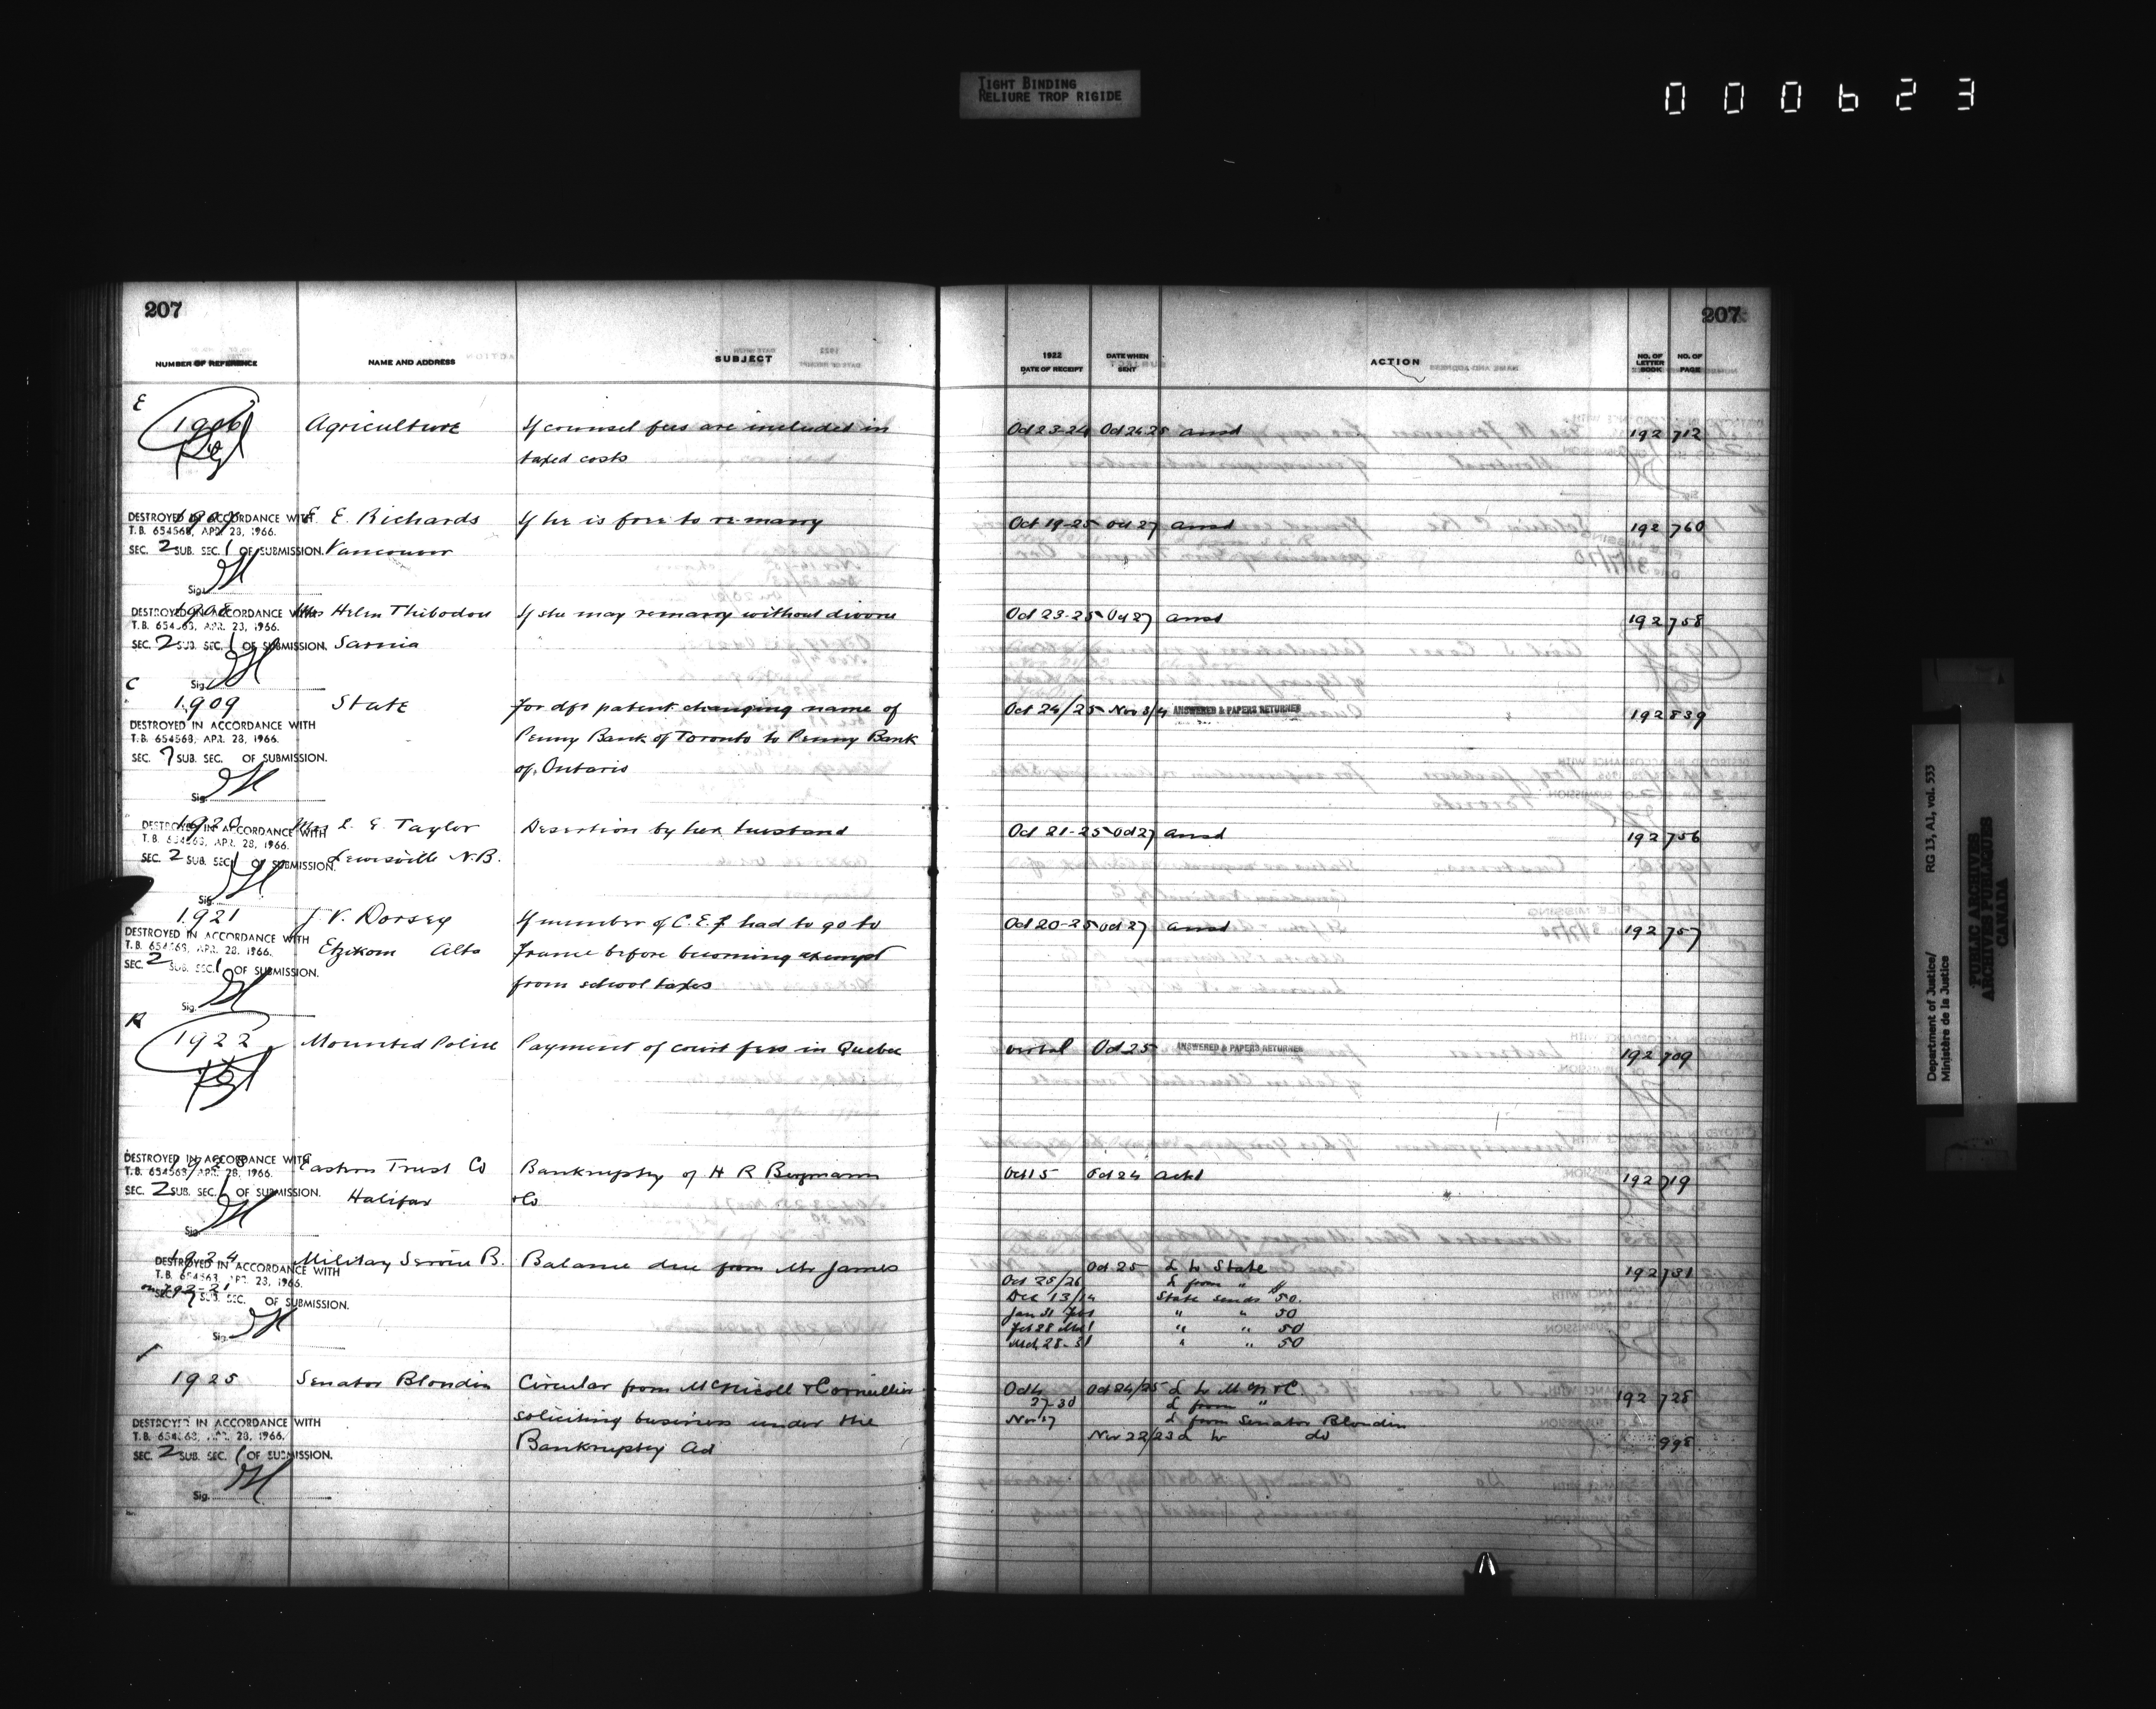 TIGHT BINDING
RELIURE TROP RIGIDE
000623
207
207
NUMBER OF REFERENCE NAME AND ADDRESS SUBJECT 1922 DATE OF RECEIPT DATE WHEN SENT ACTION NO. OF LETTER BOOK NO. OF PAGE
E
1906 Agriculture If counsel fees are included in Oct 23-24 Oct 24 25 ansd 192 712
taxed costs
E. Richards If he is free to re-marry Oct 19-25 Oct 27 ansd 192 760
DESTROYED IN ACCORDANCE WITH
T.B. 654568, APR. 28, 1966.
SEC. 2 SUB. SEC. 1 OF SUBMISSION. Vancouver
Sig.
1908 Mrs Helen Thibodou If she may remarry without divorce Oct 23-25 Oct 27 ansd 192 758
DESTROYED IN ACCORDANCE WITH
T.B. 654568, APR. 28, 1966.
SEC. 2 SUB. SEC. 1 OF SUBMISSION. Sarnia
Sig.
C
1909 State For dft patent changing name of Oct 24/25 Nov 3/4 ANSWERED & PAPERS RETURNED 192 839
DESTROYED IN ACCORDANCE WITH
T.B. 654568, APR. 28, 1966. Penny Bank of Toronto to Penny Bank
SEC. 7 SUB. SEC. OF SUBMISSION. of Ontario
Sig.
1920 Mrs L. E. Taylor Desertion by her husband Oct 21-25 Oct 27 ansd 192 756
DESTROYED IN ACCORDANCE WITH
T.B. 654568, APR. 28, 1966.
SEC. 2 SUB. SEC. 1 OF SUBMISSION. Lewisville N.B.
Sig.
1921 J. V. Dorsey If member of C.E.F had to go to Oct 20-25 Oct 27 ansd 192 757
DESTROYED IN ACCORDANCE WITH
T.B. 654568, APR. 28, 1966. Etzikom Alta France before becoming exempt
SEC. 2 SUB. SEC. 1 OF SUBMISSION. from school taxes
Sig.
1922 Mounted Police Payment of court fees in Quebec verbal Oct 25 ANSWERED & PAPERS RETURNED 192 709
1923 Eastern Trust Co Bankruptcy of H R Bozmann Oct 15 Oct 24 ackd 192 719
DESTROYED IN ACCORDANCE WITH
T.B. 654568, APR. 28, 1966.
SEC. 2 SUB. SEC. 1 OF SUBMISSION. Halifax &Co
Sig.
1924 Military Service B. Balance due from Mr James Oct 25 L to State 192 731
DESTROYED IN ACCORDANCE WITH
T.B. 654568, APR. 28, 1966. Oct 25/26 L from " "
SEC. 7 SUB. SEC. OF SUBMISSION. Dec 13/14 State sends $50.
Jan 31 Feb 1 " " 50
Feb 28 Mch 1 " " 50
Mch 28-31 " " 50
Sig.
1925 Senator Blondin Circular from McNicoll & Cornillier Oct 4 Oct 24/25 L to McN &C. 192 728
27-30 L from "
soliciting business under the Nov 17 L from Senator Blondin
Bankruptcy Act Nov 22/23 L to do 998
DESTROYED IN ACCORDANCE WITH
T.B. 654568, APR. 28, 1966.
SEC. 2 SUB. SEC. 1 OF SUBMISSION.
Sig.
Department of Justice/ RG 13, A1, vol. 533
Ministère de la Justice
PUBLIC ARCHIVES
ARCHIVES PUBLIQUES
CANADA